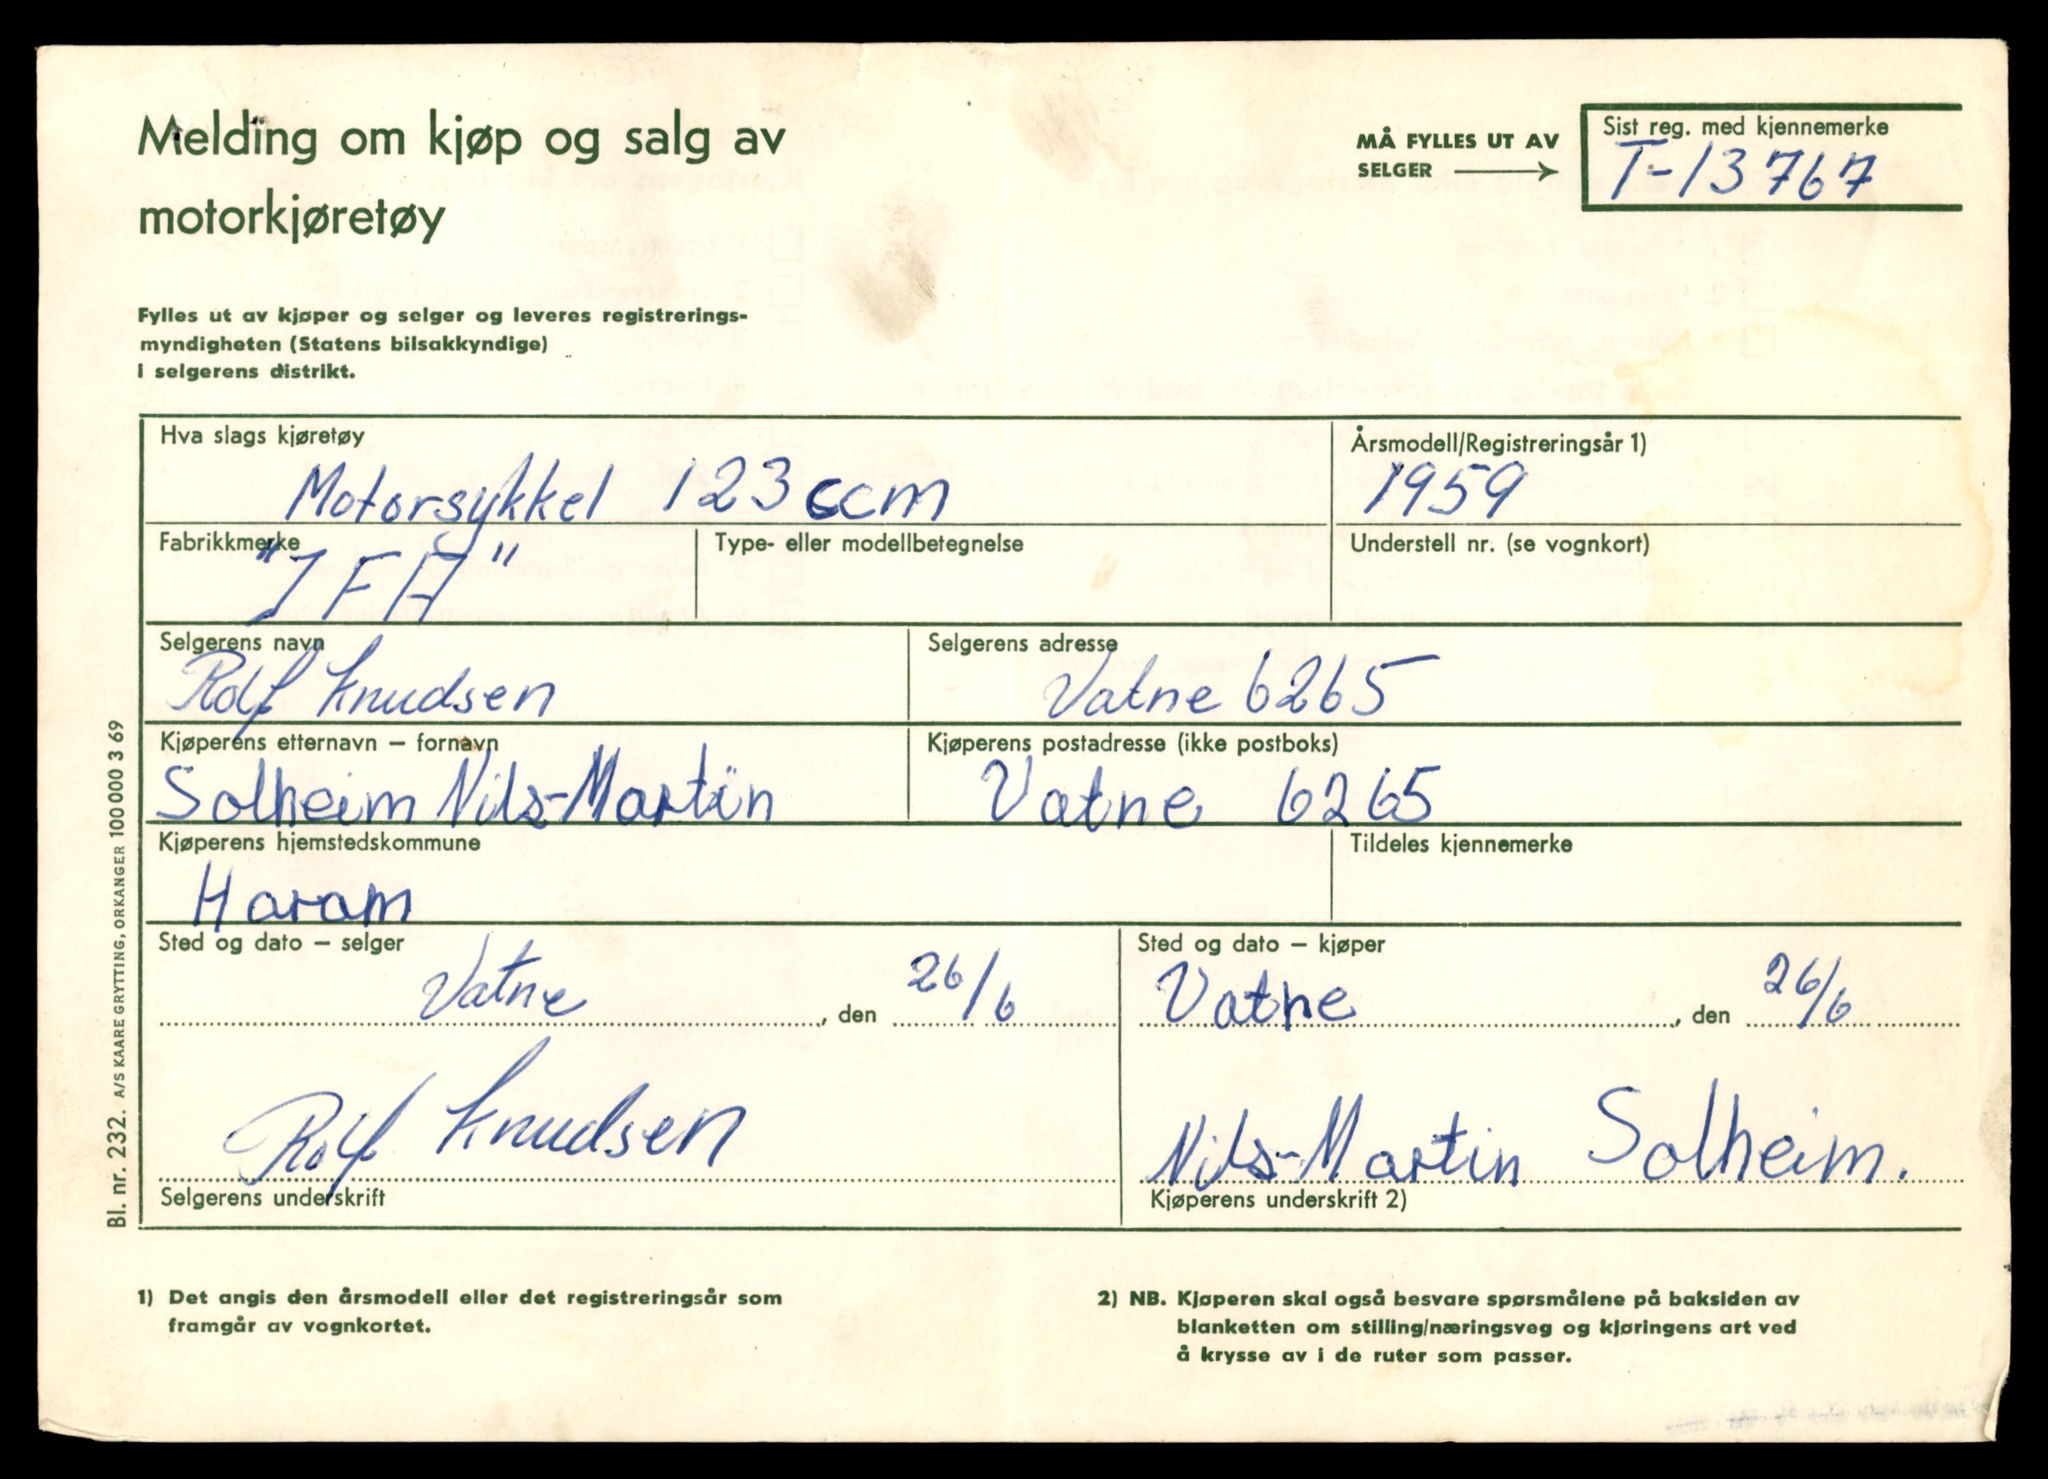 Melding om kjøp og salg av
motorkjøretøy
MÅ FYLLES UT AV
SELGER
Sist reg. med kjennemerke
T-13767
Fylles ut av kjøper og selger og leveres registrerings-
myndigheten (Statens bilsakkyndige)
i selgerens distrikt.
Hva slags kjøretøy
Motorsykkel 123 ccm
Årsmodell/Registreringsår 1)
1959
Fabrikkmerke
"IFA"
Type- eller modellbetegnelse
Understell nr. (se vognkort)
Selgerens navn
Rolf Knudsen
Selgerens adresse
Vatne 6265
Kjøperens etternavn – fornavn
Solheim Nils-Martin
Kjøperens postadresse (ikke postboks)
Vatne 6265
Kjøperens hjemstedskommune
Haram
Tildeles kjennemerke
Sted og dato – selger
Vatne, den 26/6
Sted og dato – kjøper
Vatne, den 26/6
Rolf Knudsen
Selgerens underskrift
Nils-Martin Solheim.
Kjøperens underskrift 2)
Bl. nr. 232. A/S KAARE GRYTTING, ORKANGER 100 000 3 69
1) Det angis den årsmodell eller det registreringsår som
framgår av vognkortet.
2) NB. Kjøperen skal også besvare spørsmålene på baksiden av
blanketten om stilling/næringsveg og kjøringens art ved
å krysse av i de ruter som passer.